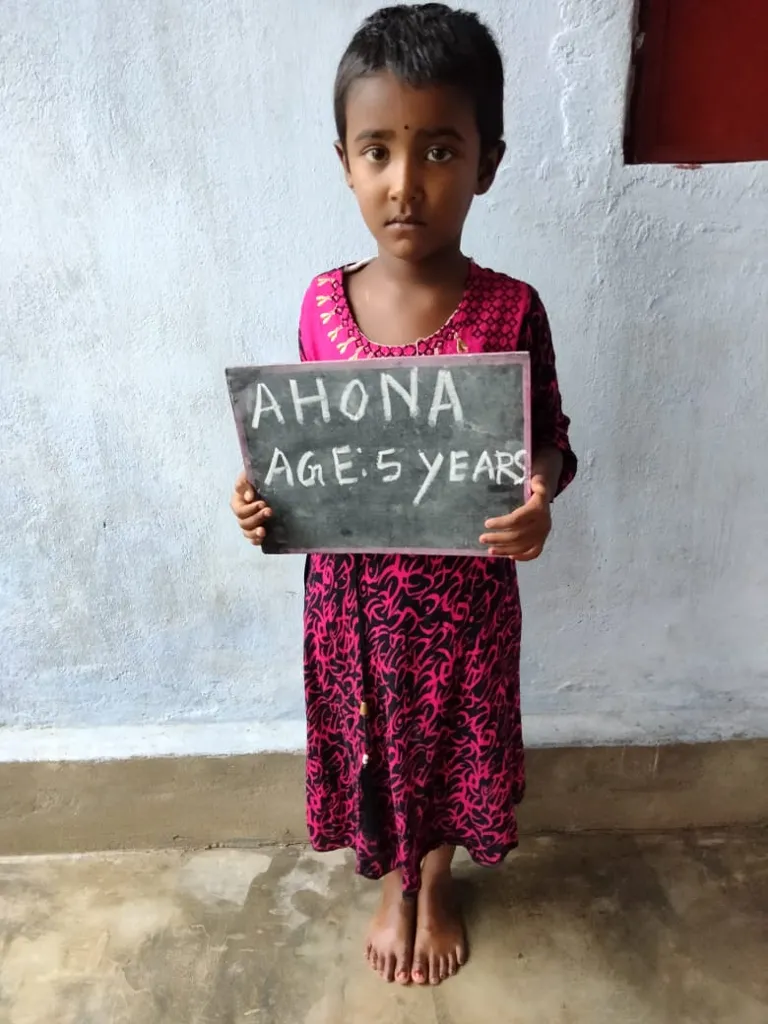 AHONA
AGE: 5 YEARS